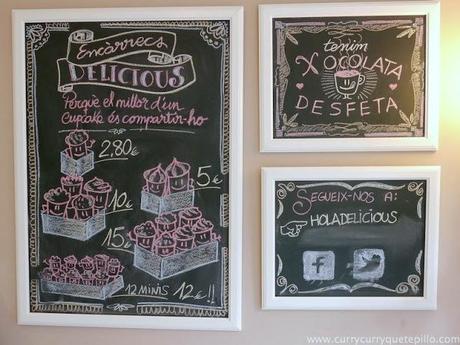 Encàrrecs
DELICIOUS
Perquè el millor d'un
Cupcake és compartir-ho
2.80€
10€
5€
15€
12 MINIS 12€!!
tenim
XOCOLATA
DESFETA
SEGUEIX-NOS A:
HOLADELICIOUS
f
www.currycurryquetepillo.com